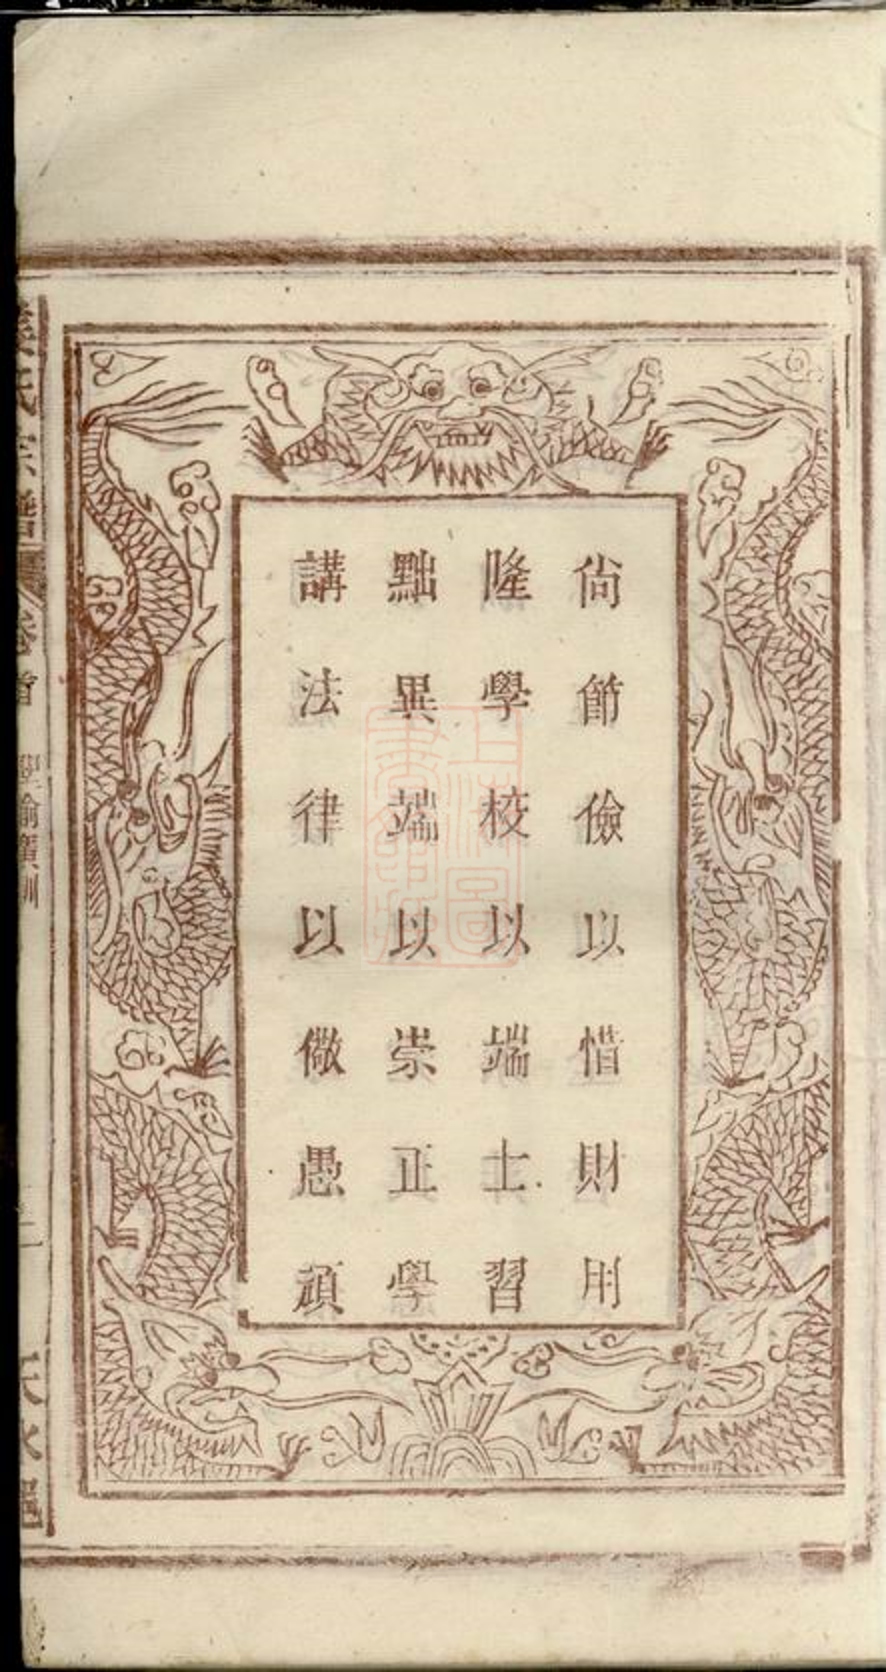 尙節儉以惜財用
隆學校以端士習
黜異端以崇正學
講法律以儆愚頑
氏宗譜
卷首
聖諭廣訓
上海圖書館藏